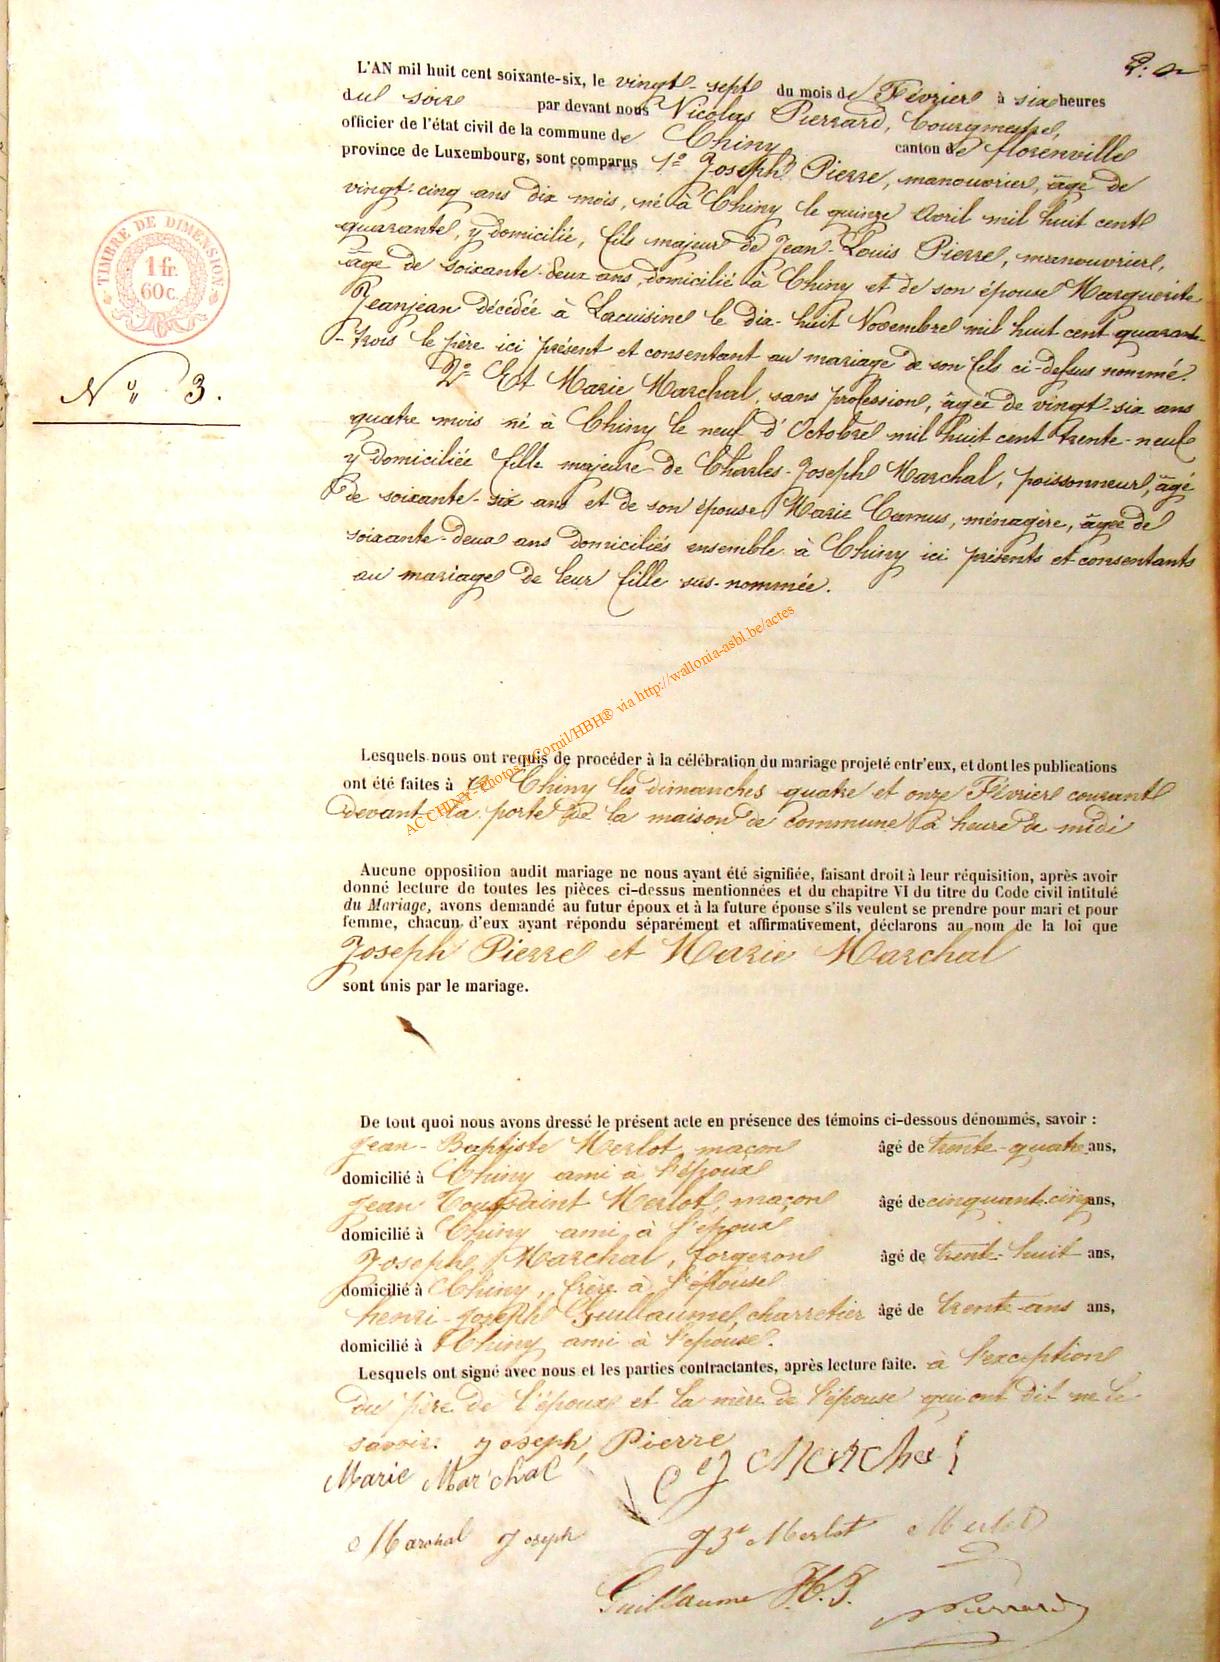 L'AN mil huit cent soixante-six, le vingt-sept du mois de Février à six heures
du soir par devant nous Nicolas Pierrard, bourgmestre,
officier de l'état civil de la commune de Chiny canton de florenville
province de Luxembourg, sont comparus 1º Joseph Pierre, manouvrier, âgé de
vingt-cinq ans dix mois, né à Chiny le quinze Avril mil huit cent
quarante, y domicilié, fils majeur de Jean-Louis Pierre, manouvrier,
âgé de soixante-deux ans, domicilié à Chiny et de son épouse Marguerite
Jeanjean décédée à Lacuisine le dix-huit Novembre mil huit cent quarante-
-trois le père ici présent et consentant au mariage de son fils ci-dessus nommé.
2º Et Marie Marchal, sans profession, âgée de vingt-six ans
quatre mois né à Chiny le neuf d'Octobre mil huit cent trente-neuf
y domiciliée fille majeure de Charles-Joseph Marchal, poissonneur, âgé
de soixante-six ans et de son épouse Marie Camus, ménagère, âgée de
soixante-deux ans domiciliés ensemble à Chiny ici présents et consentants
au mariage de leur fille sus-nommée.
TIMBRE DE DIMENSION
1 fr.
60 c.
Nº 3.
AC CHINY - Photos J.Cornil/HBH® via http://wallonia-asbl.be/actes
Lesquels nous ont requis de procéder à la célébration du mariage projeté entr'eux, et dont les publications
ont été faites à Chiny les dimanches quatre et onze Février courant
devant la porte de la maison de commune à heure de midi
Aucune opposition audit mariage ne nous ayant été signifiée, faisant droit à leur réquisition, après avoir
donné lecture de toutes les pièces ci-dessus mentionnées et du chapitre VI du titre du Code civil intitulé
du Mariage, avons demandé au futur époux et à la future épouse s'ils veulent se prendre pour mari et pour
femme, chacun d'eux ayant répondu séparément et affirmativement, déclarons au nom de la loi que
Joseph Pierre et Marie Marchal
sont unis par le mariage.
De tout quoi nous avons dressé le présent acte en présence des témoins ci-dessous dénommés, savoir :
Jean-Baptiste Merlot, maçon âgé de trente-quatre ans,
domicilié à Chiny ami à l'époux
Jean Toussaint Merlot, maçon âgé de cinquant-cinq ans,
domicilié à Chiny ami à l'époux
Joseph Marchal, forgeron âgé de trente-huit ans,
domicilié à Chiny, frère à l'épouse
henri-Joseph Guillaume, charretier âgé de trente-ans ans,
domicilié à Chiny ami à l'épouse.
Lesquels ont signé avec nous et les parties contractantes, après lecture faite. à l'exception
du père de l'époux et la mère de l'épouse qui ont dit ne le
savoir. Joseph Pierre
Marie Marchal C J Marchal
Marchal Joseph J Bte Merlot Merlot
Guillaume H. J. Pierrard